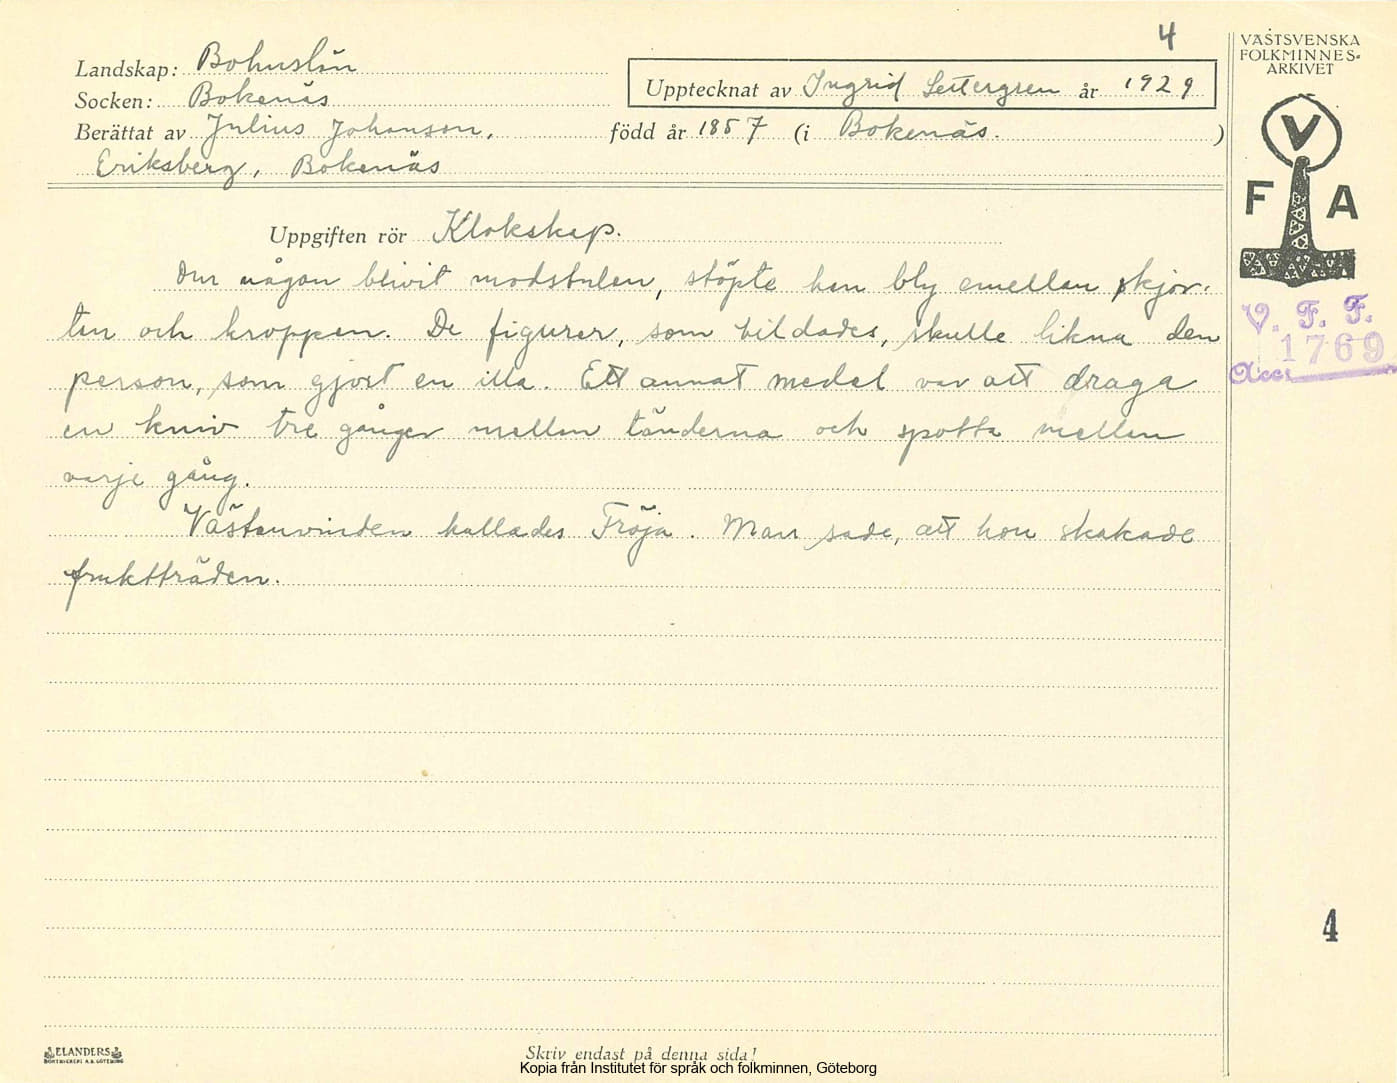 4
VÄSTSVENSKA
FOLKMINNES-
ARKIVET
Landskap: Bohuslän
Socken: Bokenäs
Upptecknat av Ingrid Settergren år 1929
Berättat av Julius Johanson, född år 1857 (i Bokenäs.)
Eriksberg, Bokenäs
V
F A
Uppgiften rör Klokskap.
Om någon blivit modstulen, stöpte han bly emellan skjor-
tan och kroppen. De figurer, som bildades, skulle likna den
person, som gjort en illa. Ett annat medel var att draga
en kniv tre gånger mellan tänderna och spotta mellan
varje gång.
Västanvinden kallades Fröja. Man sade, att hon skakade
fruktträden.
V. F. F.
1769
Acc.
4
ELANDERS
BOKTRYCKERI A.B. GÖTEBORG
Skriv endast på denna sida!
Kopia från Institutet för språk och folkminnen, Göteborg